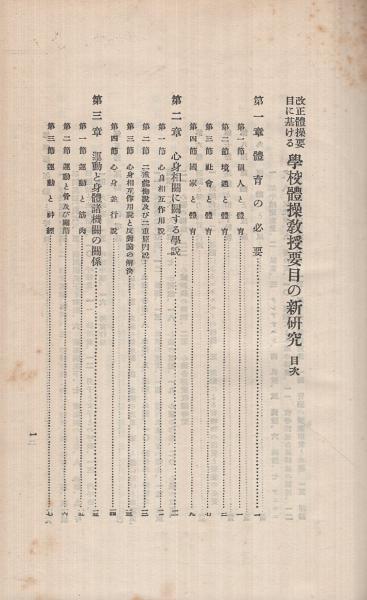 改正體操要目に基ける 學校體操敎授要目の新硏究 目次
第一章 體育の必要……一
第一節 個人と體育……一
第二節 境遇と體育……
第三節 社會と體育……七
第四節 國家と體育……九
第二章 心身相關に關する學說……
第一節 心身相互作用說……
第二節 二重觀物說及び二重原因說……
第三節 心身相互作用說と反對論の解決……
第四節 心身並行說……四
第三章 運動と身體諸機關の關係……五
第一節 運動と筋肉……五
第二節 運動と骨及び關節……六
第三節 運動と神經……七
一